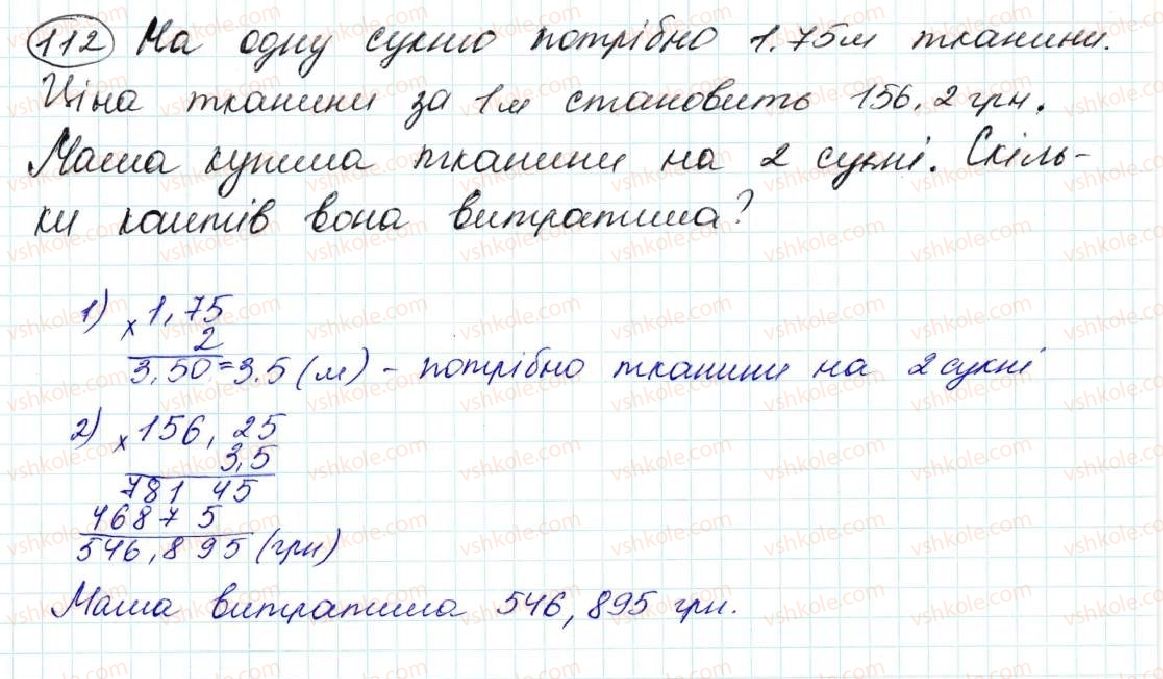 112 На одну сукню потрібно 1.75м тканини.
Ціна тканини за 1м становить 156,2 грн.
Маша купила тканини на 2 сукні. Скіль-
ки коштів вона витратила?
1) × 1,75
2
3,50=3.5 (м) - потрібно тканини на 2 сукні
2) × 156,25
3,5
781 45
4687 5
546,895 (грн)
Маша витратила 546,895 грн.